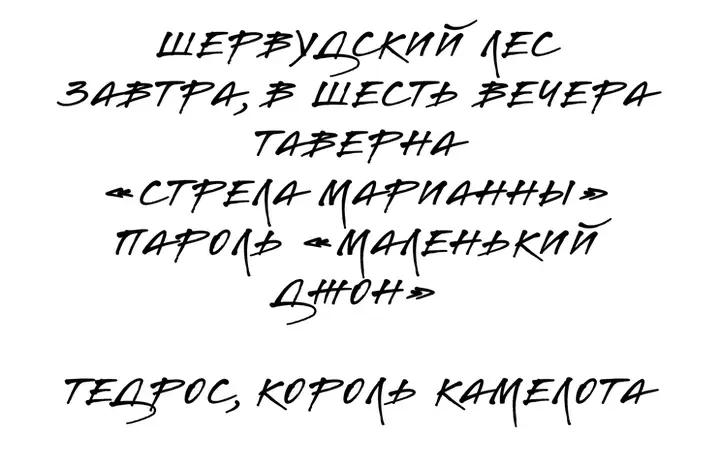 ШЕРВУДСКИЙ ЛЕС
ЗАВТРА, В ШЕСТЬ ВЕЧЕРА
ТАВЕРНА
«СТРЕЛА МАРИАННЫ»
ПАРОЛЬ «МАЛЕНЬКИЙ
ДЖОН»
ТЕДРОС, КОРОЛЬ КАМЕЛОТА